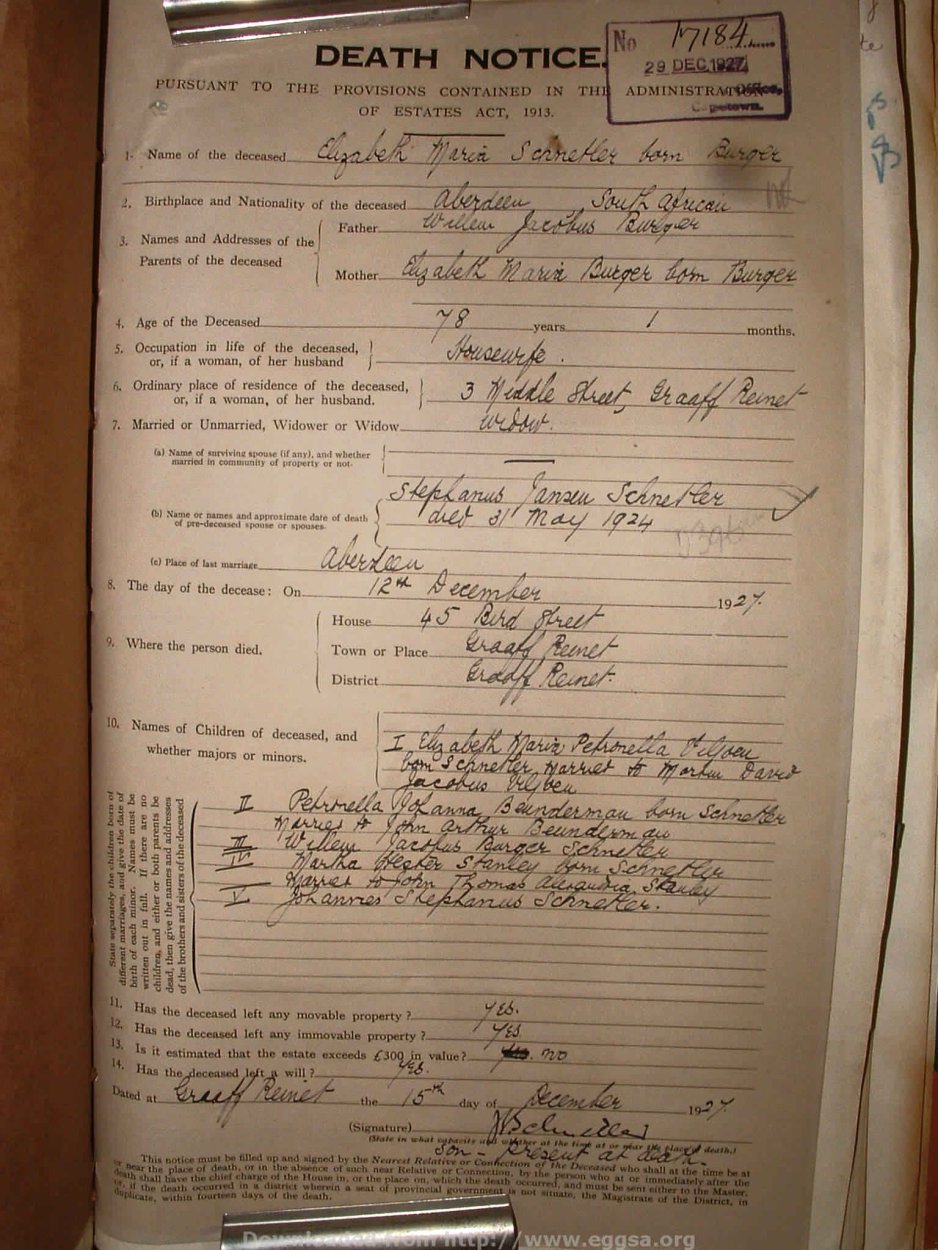 DEATH NOTICE.
No 17184
29 DEC 1927
PURSUANT TO THE PROVISIONS CONTAINED IN THE ADMINISTRATION
OF ESTATES ACT, 1913.
1. Name of the deceased Elizabeth Maria Schnetler born Burger
2. Birthplace and Nationality of the deceased Aberdeen South African
3. Names and Addresses of the Parents of the deceased
Father Willem Jacobus Burger
Mother Elizabeth Maria Burger born Burger
4. Age of the Deceased 78 years 1 months.
5. Occupation in life of the deceased, or, if a woman, of her husband Housewife.
6. Ordinary place of residence of the deceased, or, if a woman, of her husband. 3 Middle Street, Graaff Reinet
7. Married or Unmarried, Widower or Widow Widow.
(a) Name of surviving spouse (if any), and whether married in community of property or not.
(b) Name or names and approximate date of death of pre-deceased spouse or spouses.
Stephanus Jansen Schnetler
died 31 May 1924
(c) Place of last marriage Aberdeen
8. The day of the decease: On 12th December 1927.
9. Where the person died.
House 45 Bird Street
Town or Place Graaff Reinet
District Graaff Reinet.
10. Names of Children of deceased, and whether majors or minors.
State separately the children born of different marriages, and give the date of birth of each minor. Names must be written out in full. If there are no children, and either or both parents be dead, then give the names and addresses of the brothers and sisters of the deceased
I Elizabeth Maria Petronella Viljoen
born Schnetler Married to Martin David
Jacobus Viljoen
II Petronella Johanna Beunderman born Schnetler
Married to John Arthur Beunderman
III Willem Jacobus Burger Schnetler
IV Martha Hester Stanley born Schnetler
Married to John Thomas Alexandria Stanley
V Johannes Stephanus Schnetler.
11. Has the deceased left any movable property? Yes.
12. Has the deceased left any immovable property? Yes
13. Is it estimated that the estate exceeds £300 in value? no
14. Has the deceased left a will? Yes.
Dated at Graaff Reinet the 15th day of December 1927.
(Signature)
(State in what capacity and whether at the time at or near the place of death.)
Son - Present at death.
This notice must be filled up and signed by the Nearest Relative or Connection of the Deceased who shall at the time be at
or near the place of death, or in the absence of such near Relative or Connection, by the person who at or immediately after the
death shall have the chief charge of the House in, or the place on, which the death occurred, and must be sent either to the Master,
or, if the death occurred in a district wherein a seat of provincial government is not situate, the Magistrate of the District, in
duplicate, within fourteen days of the death.
Downloaded from http://www.eggsa.org